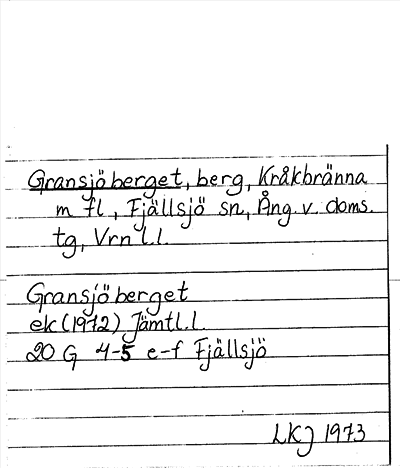 Gransjöberget, berg, Kråkbränna
m fl, Fjällsjö sn, Ång. v. doms.
tg, Vrn l.l.
Gransjöberget
ek (1972) Jämtl.l.
20 G 4-5 e-f Fjällsjö
LKJ 1973